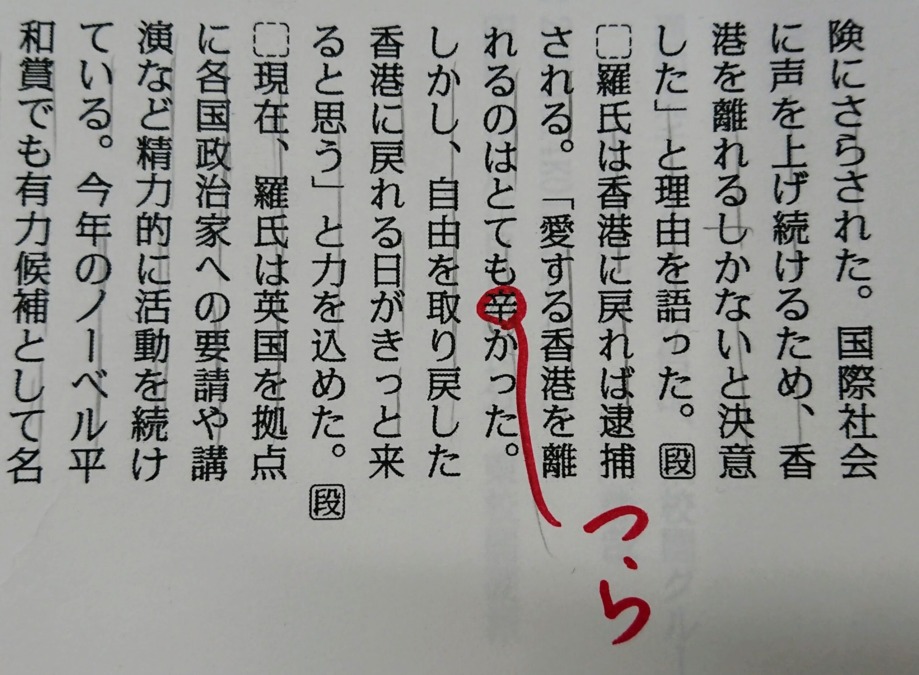 険にさらされた。国際社会
に声を上げ続けるため、香
港を離れるしかないと決意
した」と理由を語った。段
羅氏は香港に戻れば逮捕
される。「愛する香港を離
れるのはとても辛かった。
しかし、自由を取り戻した
香港に戻れる日がきっと来
ると思う」と力を込めた。段
現在、羅氏は英国を拠点
に各国政治家への要請や講
演など精力的に活動を続け
ている。今年のノーベル平
和賞でも有力候補として名
つら